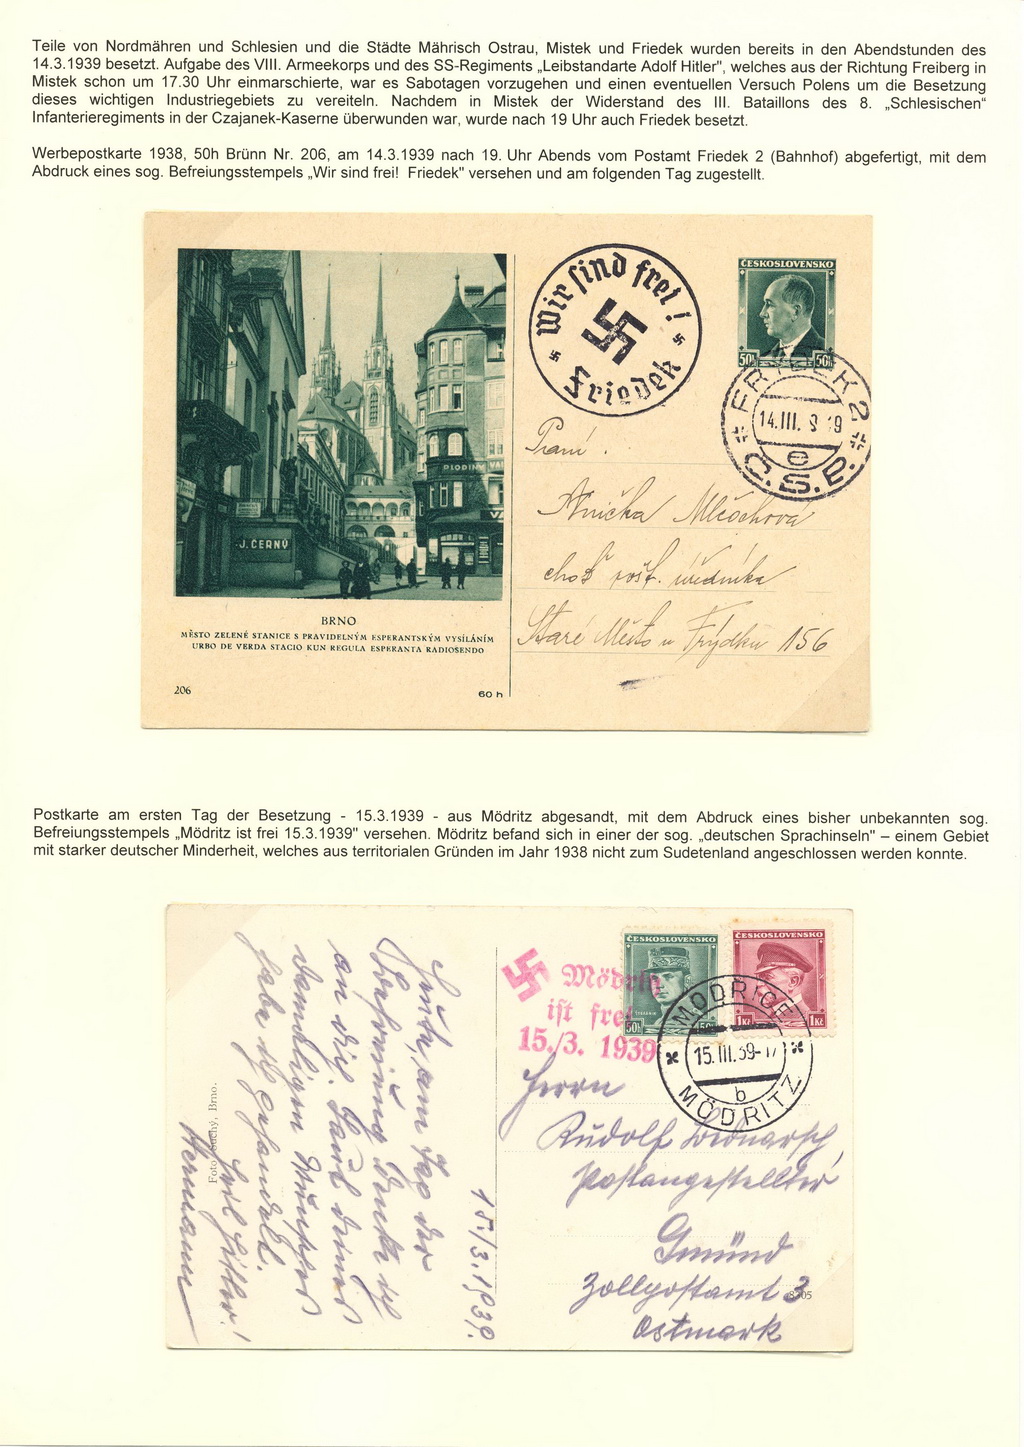 Teile von Nordmähren und Schlesien und die Städte Mährisch Ostrau, Mistek und Friedek wurden bereits in den Abendstunden des
14.3.1939 besetzt. Aufgabe des VIII. Armeekorps und des SS-Regiments „Leibstandarte Adolf Hitler", welches aus der Richtung Freiberg in
Mistek schon um 17.30 Uhr einmarschierte, war es Sabotagen vorzugehen und einen eventuellen Versuch Polens um die Besetzung
dieses wichtigen Industriegebiets zu vereiteln. Nachdem in Mistek der Widerstand des III. Bataillons des 8. „Schlesischen"
Infanterieregiments in der Czajanek-Kaserne überwunden war, wurde nach 19 Uhr auch Friedek besetzt.
Werbepostkarte 1938, 50h Brünn Nr. 206, am 14.3.1939 nach 19. Uhr Abends vom Postamt Friedek 2 (Bahnhof) abgefertigt, mit dem
Abdruck eines sog. Befreiungsstempels „Wir sind frei! Friedek" versehen und am folgenden Tag zugestellt.
Wir sind frei!
Friedek
ČESKOSLOVENSKO
50h 50h
FRÝDEK 2
14.III. 3 19
e
Č.S.P.
PLODINY
J. ČERNÝ
Paní
Anička Mločchová
choť pošt. úředníka
Staré Město u Frýdku 156
BRNO
MĚSTO ZELENÉ STANICE S PRAVIDELNÝM ESPERANTSKÝM VYSÍLÁNÍM
URBO DE VERDA STACIO KUN REGULA ESPERANTA RADIOSENDO
206
60 h
Postkarte am ersten Tag der Besetzung - 15.3.1939 - aus Mödritz abgesandt, mit dem Abdruck eines bisher unbekannten sog.
Befreiungsstempels „Mödritz ist frei 15.3.1939" versehen. Mödritz befand sich in einer der sog. „deutschen Sprachinseln" – einem Gebiet
mit starker deutscher Minderheit, welches aus territorialen Gründen im Jahr 1938 nicht zum Sudetenland angeschlossen werden konnte.
ČESKOSLOVENSKO
50h 50h
ČESKOSLOVENSKO
1Kč 1Kč
Mödritz
ist frei
15./3. 1939
MODŘICE
15.III.39-17
b
MÖDRITZ
15./3.1939.
Heute, am Tag der
Befreiung denke ich
an dich. Hab deinen
damaligen
habe
Heil Hitler!
Hermann
Foto Suchý, Brno.
Herrn
Rudolf
Postangestellter
Gmünd
Zollpostamt 3
Ostmark